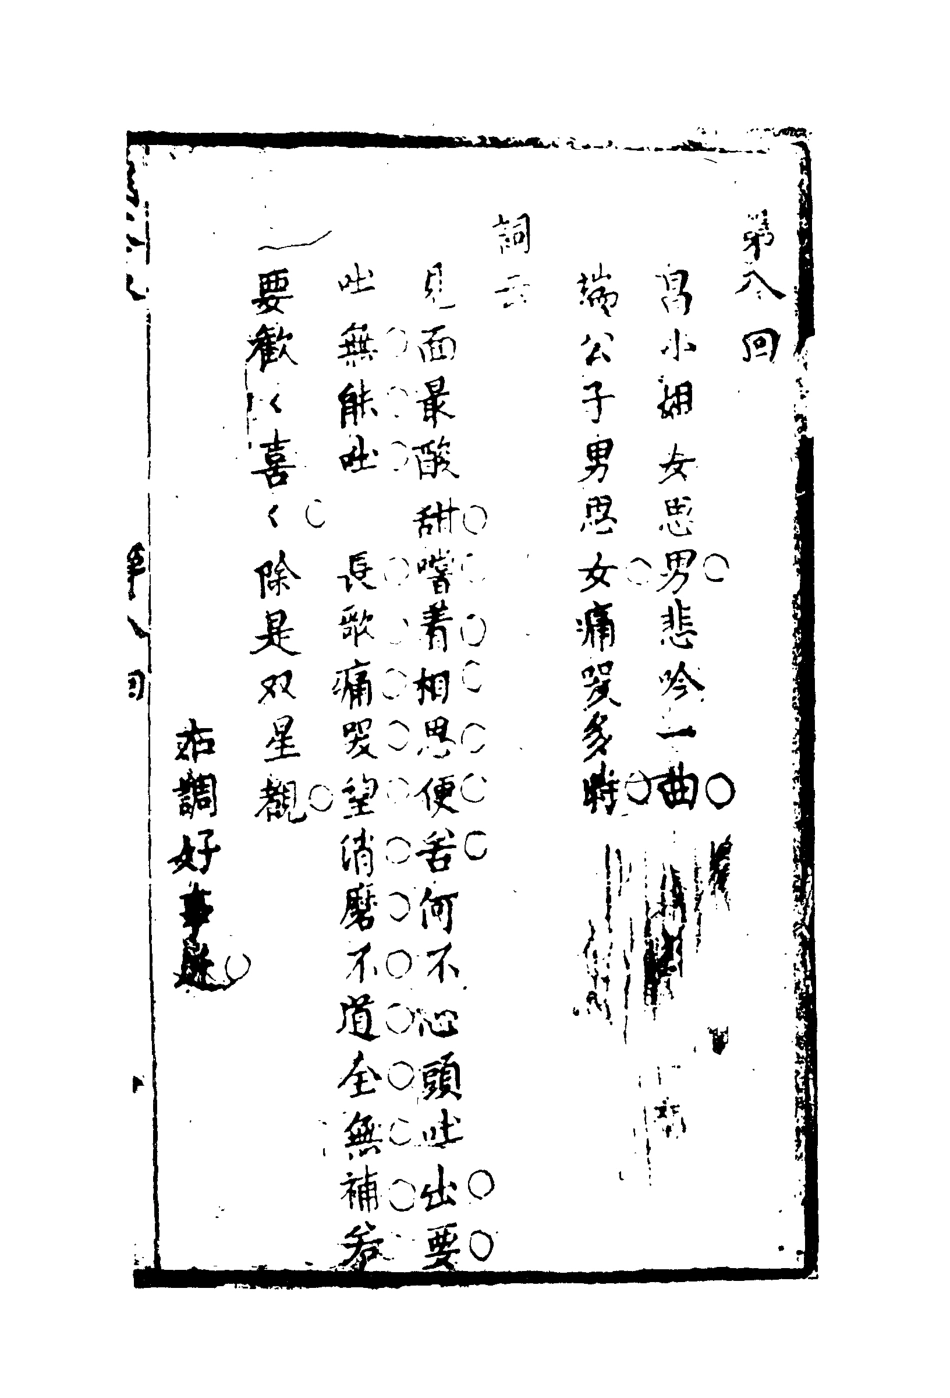 第八回
昌小姐女思男悲吟一曲
端公子男思女痛哭多時
詞云
見面最酸甜嚐着相思便苦何不心頭吐出要
吐無能吐　長歌痛哭望消磨不道全無補若
要歡〱喜〱除是双星覩
右調好事近
第八回